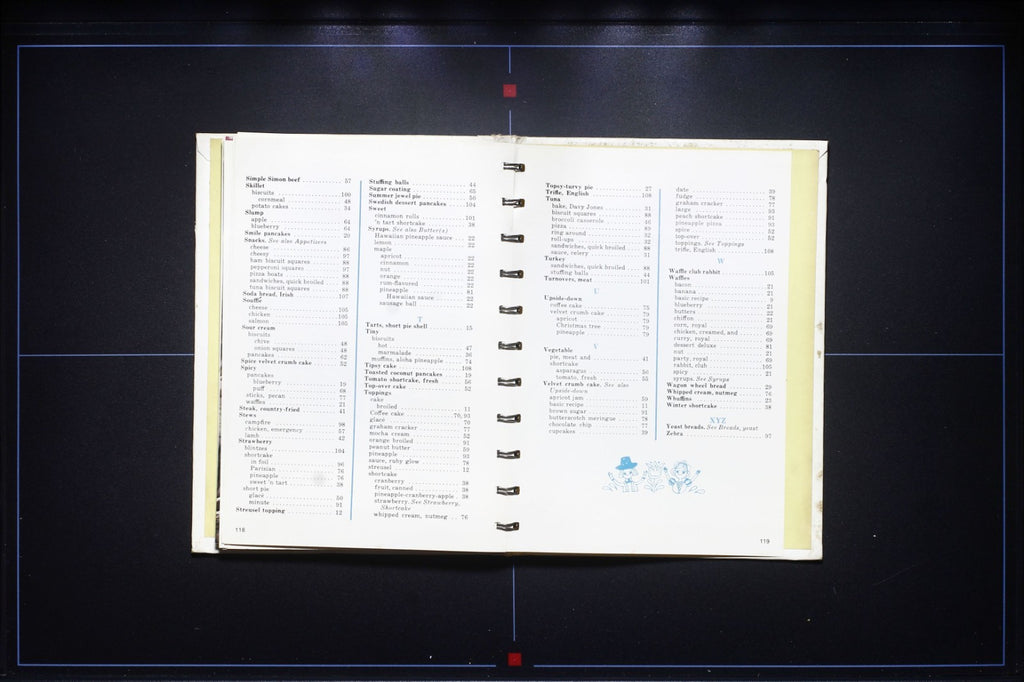 Simple Simon beef .......... 57
Skillet
biscuits .......... 100
cornmeal .......... 48
potato cakes .......... 34
Slump
apple .......... 64
blueberry .......... 64
Smile pancakes .......... 20
Snacks. See also Appetizers
cheese .......... 86
cheesy .......... 97
ham biscuit squares .......... 88
pepperoni squares .......... 97
pizza boats .......... 88
sandwiches, quick broiled .......... 88
tuna biscuit squares .......... 88
Soda bread, Irish .......... 107
Soufflé
cheese .......... 105
chicken .......... 105
salmon .......... 105
Sour cream
biscuits
chive .......... 48
onion squares .......... 48
pancakes .......... 62
Spice velvet crumb cake .......... 52
Spicy
pancakes
blueberry .......... 19
puff .......... 68
sticks, pecan .......... 77
waffles .......... 21
Steak, country-fried .......... 41
Stews
campfire .......... 98
chicken, emergency .......... 57
lamb .......... 42
Strawberry
blintzes .......... 104
shortcake
in foil .......... 96
Parisian .......... 76
pineapple .......... 76
sweet 'n tart .......... 38
short pie
glacé .......... 50
minute .......... 91
Streusel topping .......... 12
118
Stuffing balls .......... 44
Sugar coating .......... 65
Summer jewel pie .......... 50
Swedish dessert pancakes .......... 104
Sweet
cinnamon rolls .......... 101
'n tart shortcake .......... 38
Syrups. See also Butter(s)
Hawaiian pineapple sauce .......... 22
lemon .......... 22
maple
apricot .......... 22
cinnamon .......... 22
nut .......... 22
orange .......... 22
rum-flavored .......... 22
pineapple .......... 81
Hawaiian sauce .......... 22
sausage ball .......... 22
T
Tarts, short pie shell .......... 15
Tiny
biscuits
hot .......... 47
marmalade .......... 36
muffins, aloha pineapple .......... 74
Tipsy cake .......... 108
Toasted coconut pancakes .......... 19
Tomato shortcake, fresh .......... 56
Top-over cake .......... 52
Toppings
cake
broiled .......... 11
Coffee cake .......... 70, 93
glacé .......... 70
graham cracker .......... 77
mocha cream .......... 52
orange broiled .......... 91
peanut butter .......... 59
pineapple .......... 93
sauce, ruby glow .......... 78
streusel .......... 12
shortcake
cranberry .......... 38
fruit, canned .......... 38
pineapple-cranberry-apple . 38
strawberry. See Strawberry,
Shortcake
whipped cream, nutmeg .. 76
Topsy-turvy pie .......... 27
Trifle, English .......... 108
Tuna
bake, Davy Jones .......... 31
biscuit squares .......... 88
broccoli casserole .......... 46
pizza .......... 89
ring around .......... 32
roll-ups .......... 32
sandwiches, quick broiled .......... 88
sauce, celery .......... 31
Turkey
sandwiches, quick broiled .......... 88
stuffing balls .......... 44
Turnovers, meat .......... 101
U
Upside-down
coffee cake .......... 75
velvet crumb cake .......... 79
apricot .......... 79
Christmas tree .......... 79
pineapple .......... 79
V
Vegetable
pie, meat and .......... 41
shortcake
asparagus .......... 56
tomato, fresh .......... 55
Velvet crumb cake. See also
Upside-down
apricot jam .......... 59
basic recipe .......... 11
brown sugar .......... 91
butterscotch meringue .......... 78
chocolate chip .......... 77
cupcakes .......... 39
date .......... 39
fudge .......... 78
graham cracker .......... 77
large .......... 93
peach shortcake .......... 91
pineapple pizza .......... 93
spice .......... 52
top-over .......... 52
toppings. See Toppings
trifle, English .......... 108
W
Waffle club rabbit .......... 105
Waffles
bacon .......... 21
banana .......... 21
basic recipe .......... 9
blueberry .......... 21
butters .......... 22
chiffon .......... 21
corn, royal .......... 69
chicken, creamed, and .......... 69
curry, royal .......... 69
dessert deluxe .......... 81
nut .......... 21
party, royal .......... 69
rabbit, club .......... 105
spicy .......... 21
syrups. See Syrups
Wagon wheel bread .......... 29
Whipped cream, nutmeg .......... 76
Wuffins .......... 23
Winter shortcake .......... 38
XYZ
Yeast breads. See Breads, yeast
Zebra .......... 97
119